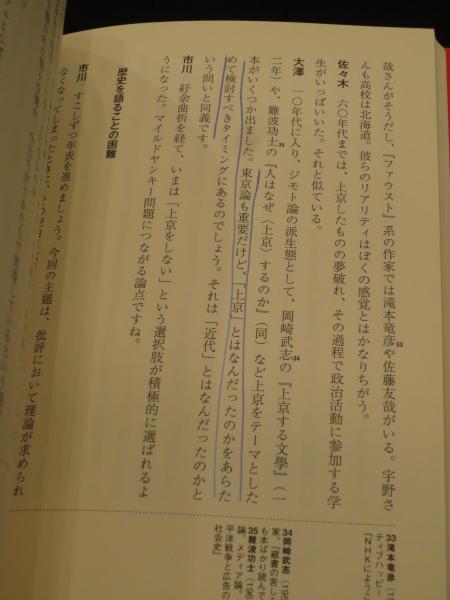 哉さんがそうだし、『ファウスト』系の作家では滝本竜彦33や佐藤友哉がいる。宇野さ
んも高校は北海道。彼らのリアリティはぼくの感覚とはかなりちがう。
佐々木 六〇年代までは、上京したものの夢破れ、その過程で政治活動に参加する学
生がいっぱいいた。それと似ている。
大澤 一〇年代に入り、ジモト論の派生態として、岡崎武志34の『上京する文學』（一
二年）や、難波功士35の『人はなぜ〈上京〉するのか』（同）など上京をテーマとした
本がいくつか出ました。東京論も重要だけど、「上京」とはなんだったのかをあらた
めて検討すべきタイミングにあるのでしょう。それは「近代」とはなんだったのかと
いう問いと同義です。
市川 紆余曲折を経て、いまは「上京をしない」という選択肢が積極的に選ばれるよ
うになった。マイルドヤンキー問題につながる論点ですね。
歴史を語ることの困難
市川 すこしずつ年表を進めましょう。今回の主題は、批評において理論が求められ
なくなってしまったときに、
33 滝本竜彦
ティブハッピー
『NHKにようこ
34 岡崎武志
家。『蔵書の苦し
も本ばかり読んで
35 難波功士
論、メディア論。
平洋戦争と広告の
社会史』